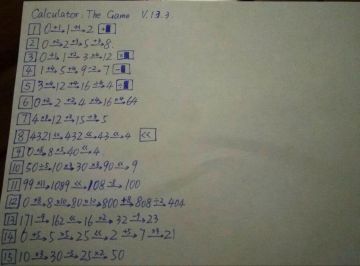 Calculator: The Game V.1.3.3
1 0 +1→ 1 +1→ 2 +■
2 0 +2→ 2 +3→ 5 +3→ 8.
3 0 +1→ 1 +2→ 3 ×4→ 12 ×■
4 1 +4→ 5 +4→ 9 -2→ 7 -■
5 3 ×4→ 12 +4→ 16 ÷4→ 4 ÷■
6 0 +2→ 2 +2→ 4 ×4→ 16 ×4→ 64
7 4 +8→ 12 +3→ 15 ÷3→ 5
8 4321 <<→ 432 <<→ 43 <<→ 4 <<
9 0 +8→ 8 ×5→ 40 <<→ 4
10 50 ÷5→ 10 ×3→ 30 ×3→ 90 <<→ 9
11 99 ×11→ 1089 <<→ 108 -8→ 100
12 0 +8→ 8 ×10→ 80 ×10→ 800 +8→ 808 ÷2→ 404
13 171 -9→ 162 <<→ 16 ×2→ 32 -9→ 23
14 0 +5→ 5 ×5→ 25 <<→ 2 +5→ 7 ×3→ 21
15 10 ×3→ 30 -5→ 25 ×2→ 50